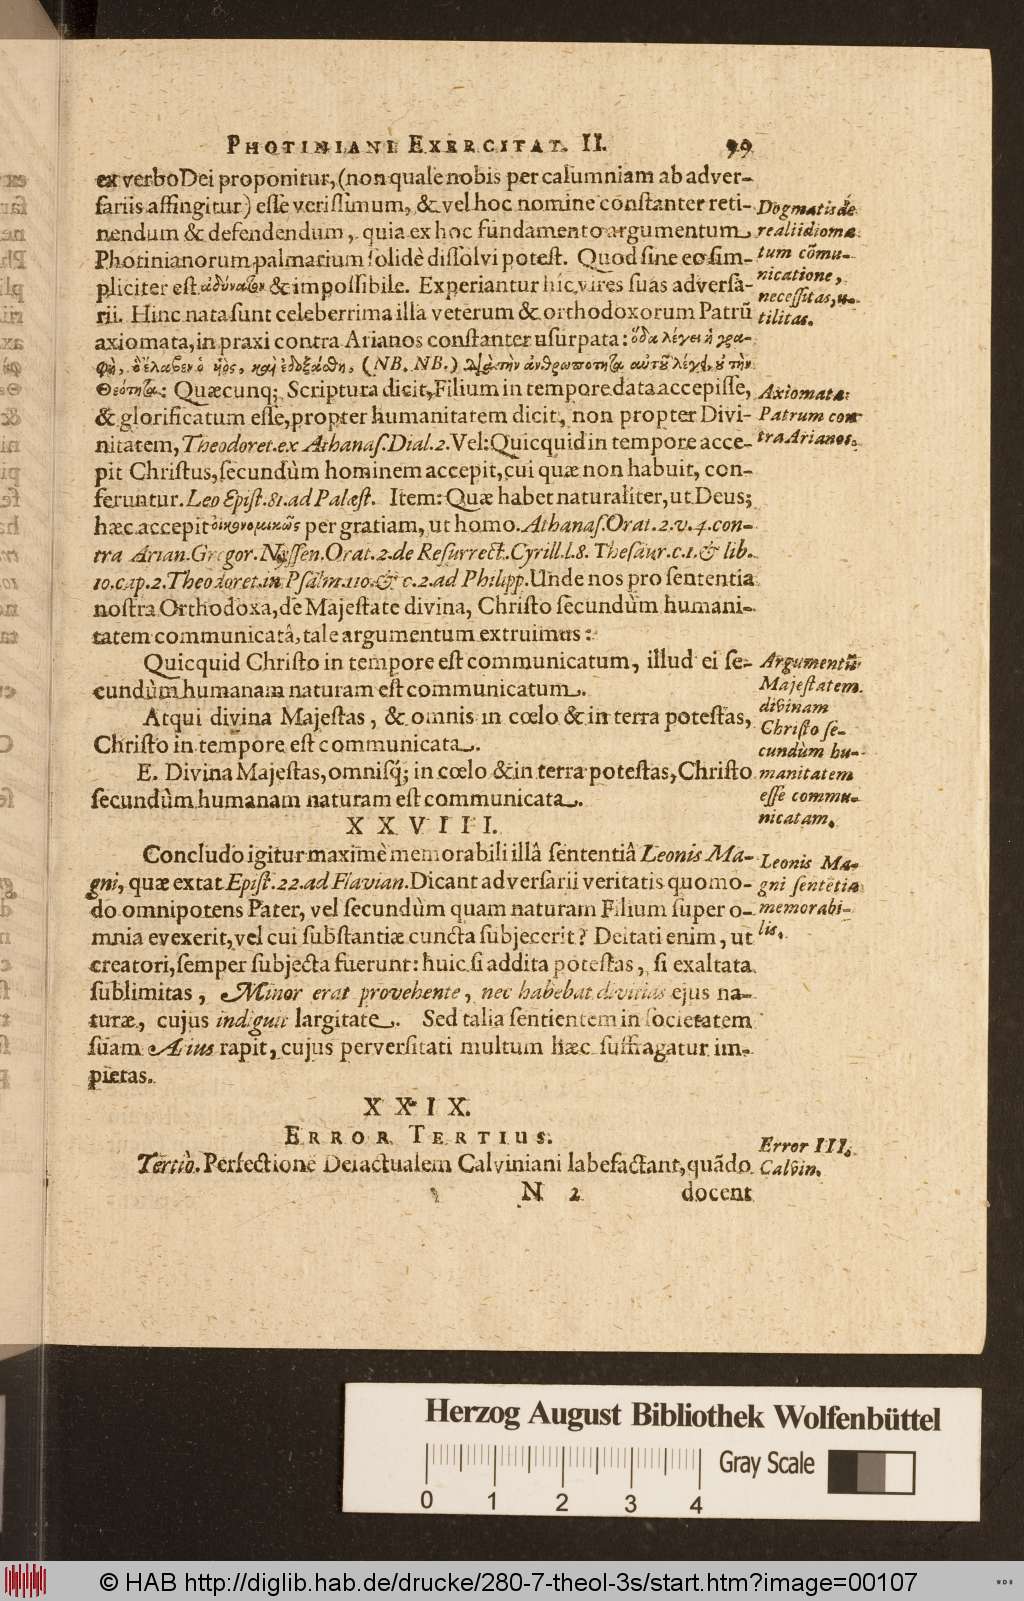 PHOTINIANI EXERCITAT. II. 99
ex verbo Dei proponitur, (non quale nobis per calumniam ab adver-
sariis affingitur) esse verissimum, & vel hoc nomine constanter reti-
nendum & defendendum, quia ex hoc fundamento argumentum
Photinianorum palmarium solidè dissolvi potest. Quod sine eo sim-
pliciter est ἀδύνατον & impossibile. Experiantur hîc vires suas adversa-
rii. Hinc nata sunt celeberrima illa veterum & orthodoxorum Patrũ
axiomata, in praxi contra Arianos constanter usurpata: ὅσα λέγει ἡ γρα-
φὴ, ὅτι ἔλαβεν ὁ υἱὸς, καὶ ἐδοξάσθη, (NB. NB.) διὰ τὴν ἀνθρωπότητα αὐτοῦ λέγει, οὐ τὴν
Θεότητα: Quæcunq; Scriptura dicit, Filium in tempore data accepisse,
& glorificatum esse, propter humanitatem dicit, non propter Divi-
nitatem, Theodoret. ex Athanas. Dial. 2. Vel: Quicquid in tempore acce-
pit Christus, secundùm hominem accepit, cui quæ non habuit, con-
feruntur. Leo Epist. 81. ad Palæst. Item: Quæ habet naturaliter, ut Deus;
hæc accepit οἰκονομικῶς per gratiam, ut homo. Athanas. Orat. 2. v. 4. con-
tra Arian. Gregor. Nyssen. Orat. 2. de Resurrect. Cyrill. l. 8. Thesaur. c. 1. & lib.
10. cap. 2. Theodoret. in Psalm. 110. & c. 2. ad Philipp. Unde nos pro sententia
nostra Orthodoxa, de Majestate divina, Christo secundùm humani-
tatem communicatâ, tale argumentum extruimus:
Quicquid Christo in tempore est communicatum, illud ei se-
cundùm humanam naturam est communicatum.
Atqui divina Majestas, & omnis in cœlo & in terra potestas,
Christo in tempore est communicata.
E. Divina Majestas, omnisq́; in cœlo & in terra potestas, Christo
secundùm humanam naturam est communicata.
XXVIII.
Concludo igitur maximè memorabili illâ sententiâ Leonis Ma-
gni, quæ extat Epist. 22. ad Flavian. Dicant adversarii veritatis quomo-
do omnipotens Pater, vel secundùm quam naturam Filium super o-
mnia evexerit, vel cui substantiæ cuncta subjecerit? Deitati enim, ut
creatori, semper subjecta fuerunt: huic si addita potestas, si exaltata
sublimitas, Minor erat provehente, nec habebat divitias ejus na-
turæ, cujus indiguit largitate. Sed talia sentientem in societatem
suam Arius rapit, cujus perversitati multum hæc suffragatur im-
pietas.
XXIX.
ERROR TERTIUS.
Tertiò. Perfectionẽ Dei actualem Calviniani labefactant, quãdo
N 2 docent
Dogmatis de
reali idioma-
tum cõmu-
nicatione,
necessitas, u-
tilitas.
Axiomata
Patrum con-
tra Arianos.
Argumentũ
Majestatem
divinam
Christo se-
cundùm hu-
manitatem
esse commu-
nicatam.
Leonis Ma-
gni sentẽtia
memorabi-
lis.
Error III.
Calvin.
Herzog August Bibliothek Wolfenbüttel
Gray Scale
0 1 2 3 4
© HAB http://diglib.hab.de/drucke/280-7-theol-3s/start.htm?image=00107